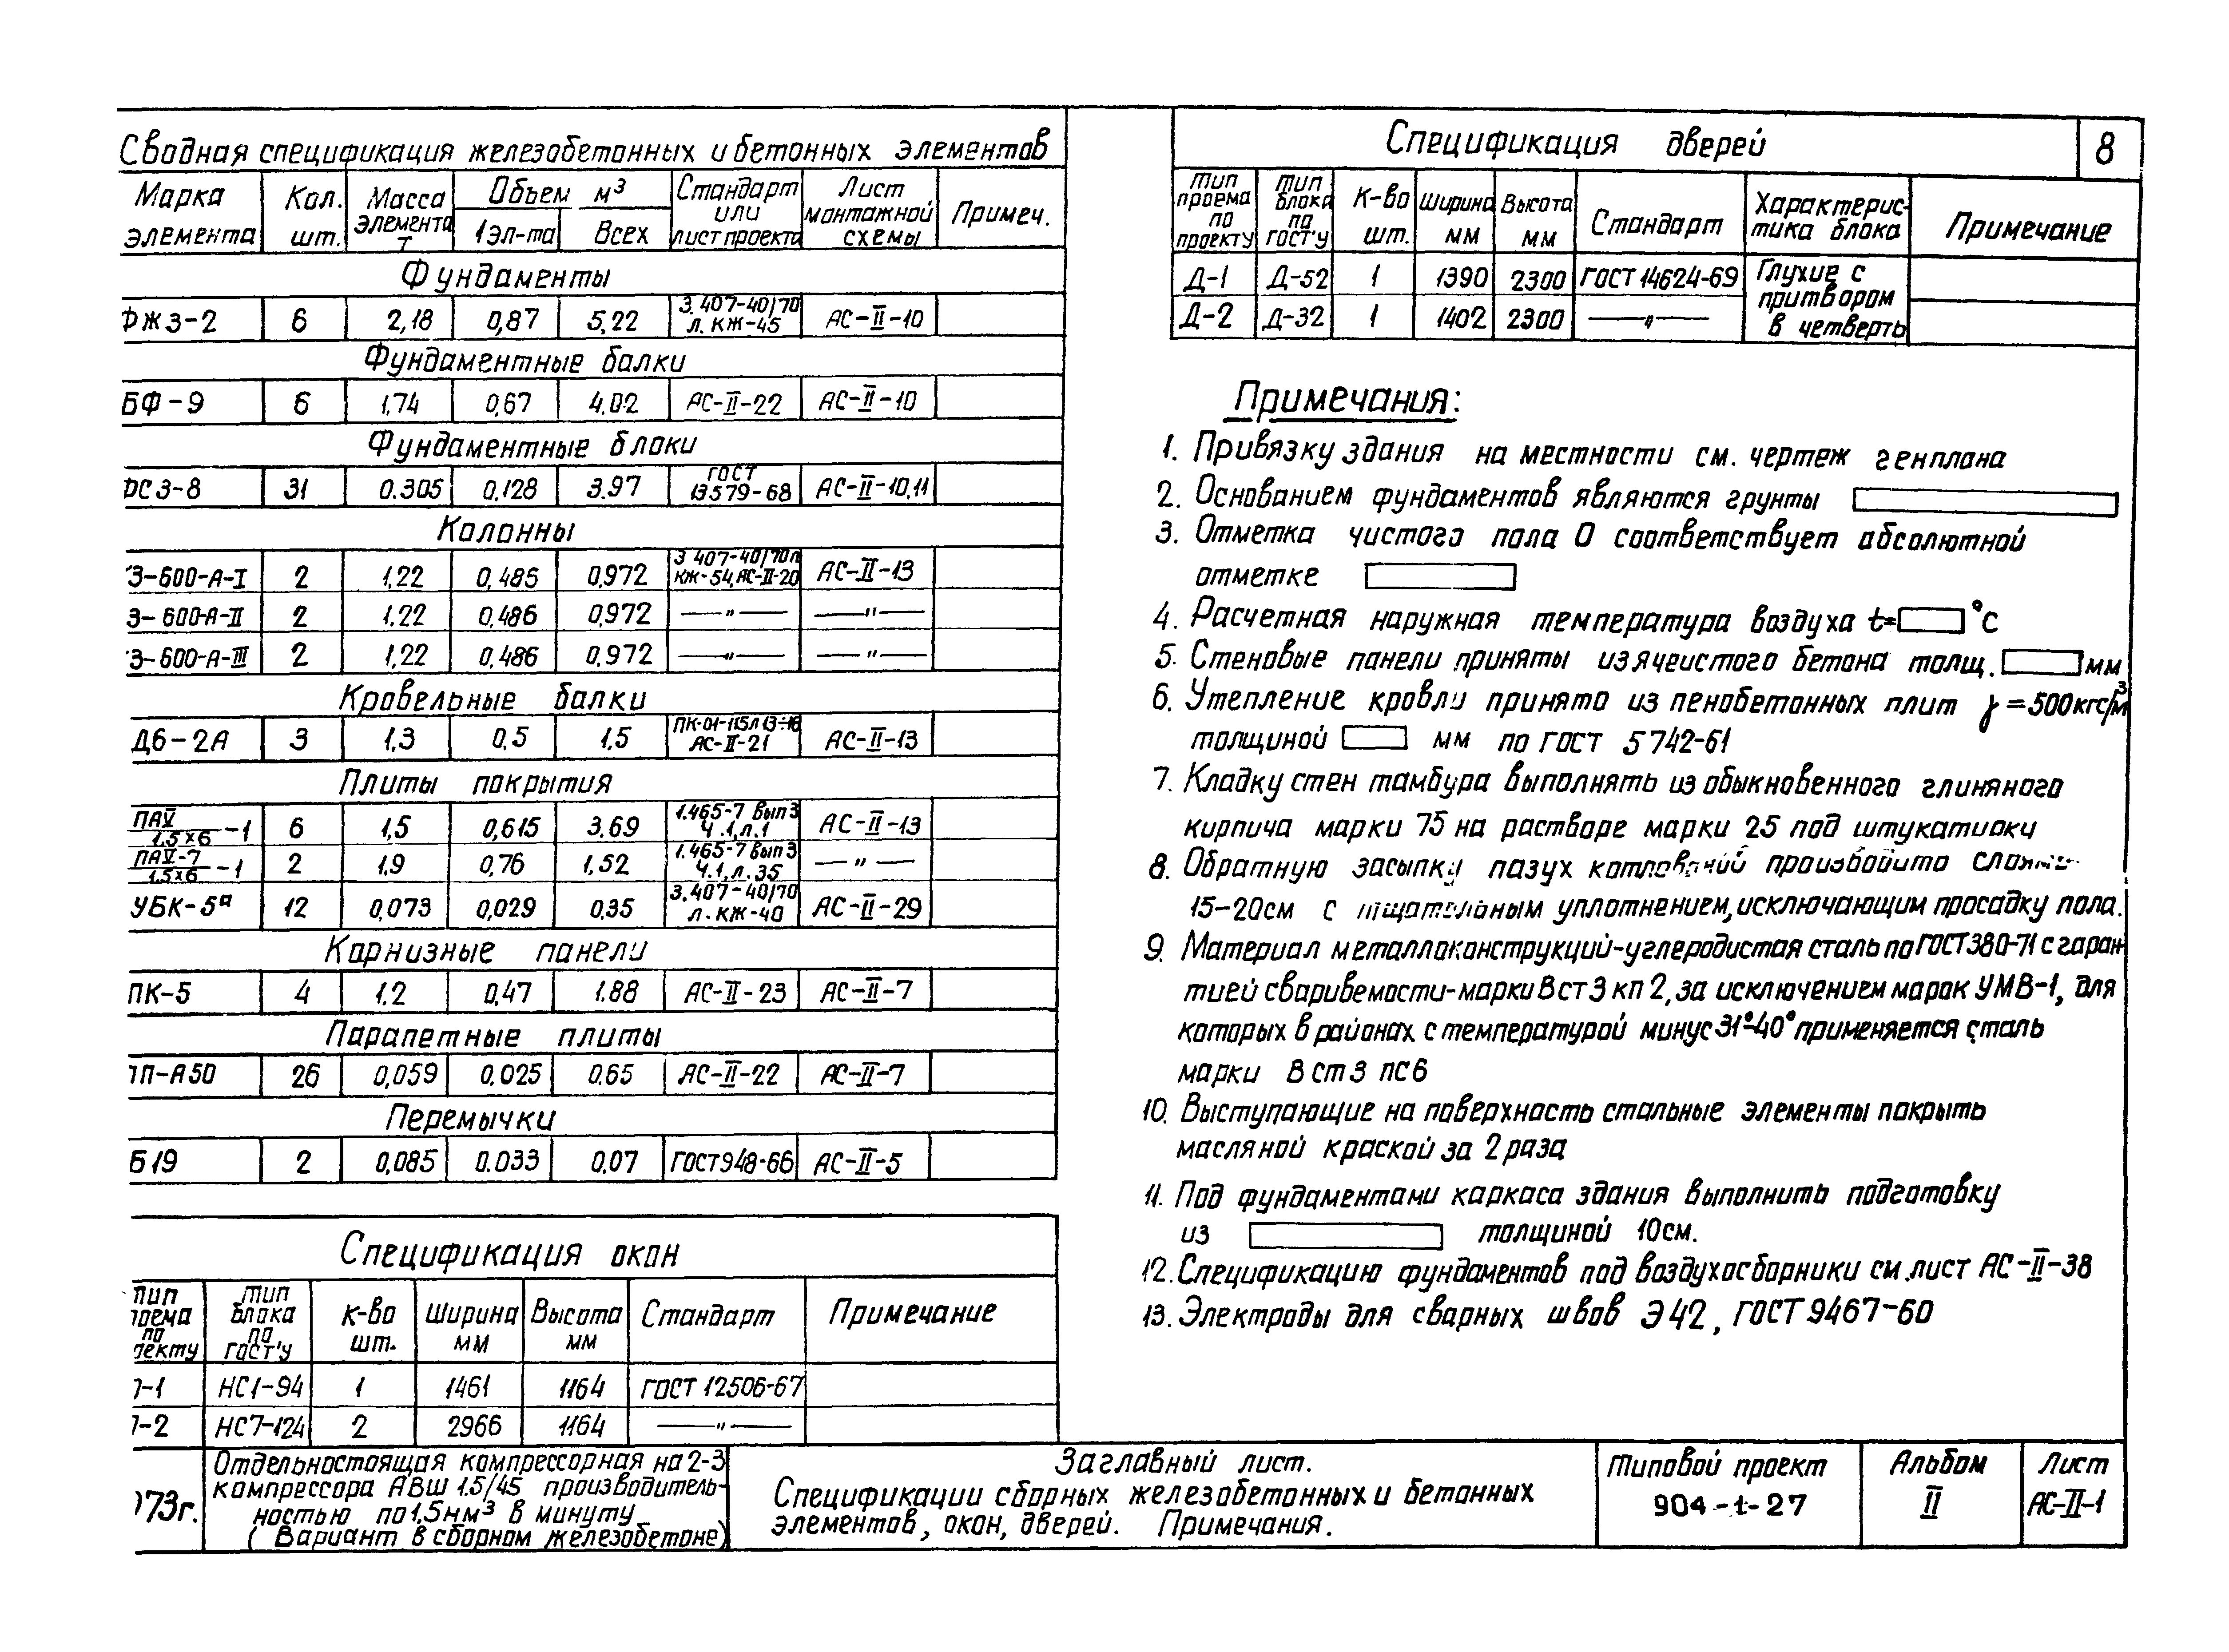 Сводная спецификация железобетонных и бетонных элементов
Марка элемента | Кол. шт. | Масса элемента т | Объем м³ 1 эл-та | Всех | Стандарт или лист проекта | Лист монтажной схемы | Примеч.
Фундаменты
ФЖ3-2 | 6 | 2,18 | 0,87 | 5,22 | 3.407-40/70 л. КЖ-45 | АС-II-10
Фундаментные балки
БФ-9 | 6 | 1,74 | 0,67 | 4,02 | АС-II-22 | АС-II-10
Фундаментные блоки
ФС3-8 | 31 | 0.305 | 0,128 | 3.97 | ГОСТ 13579-68 | АС-II-10,11
Колонны
3-600-А-I | 2 | 1,22 | 0,486 | 0,972 | 3.407-40/70 л КЖ-54, АС-II-20 | АС-II-13
3-600-А-II | 2 | 1.22 | 0,486 | 0,972 | —"— | —"—
3-600-А-III | 2 | 1,22 | 0,486 | 0,972 | —"— | —"—
Кровельные балки
Д6-2А | 3 | 1,3 | 0,5 | 1,5 | ПК-01-115 л 13÷16 АС-II-21 | АС-II-13
Плиты покрытия
ПАV/1,5×6-1 | 6 | 1,5 | 0,615 | 3.69 | 1.465-7 вып 3 ч.1, л.1 | АС-II-13
ПАV-7/1,5×6-1 | 2 | 1,9 | 0,76 | 1,52 | 1.465-7 вып 3 ч.1, л.35 | —"—
УБК-5а | 12 | 0,073 | 0,029 | 0,35 | 3.407-40/70 л. КЖ-40 | АС-II-29
Карнизные панели
ПК-5 | 4 | 1.2 | 0,47 | 1.88 | АС-II-23 | АС-II-7
Парапетные плиты
ПП-А50 | 26 | 0,059 | 0.025 | 0.65 | АС-II-22 | АС-II-7
Перемычки
Б19 | 2 | 0,085 | 0.033 | 0,07 | ГОСТ 948-66 | АС-II-5
Спецификация окон
тип проема по проекту | тип блока по ГОСТ'у | к-во шт. | Ширина мм | Высота мм | Стандарт | Примечание
-1 | НС1-94 | 1 | 1461 | 1164 | ГОСТ 12506-67
-2 | НС7-124 | 2 | 2966 | 1164 | —"—
Спецификация дверей
8
тип проема по проекту | тип блока по ГОСТ'у | К-во шт. | Ширина мм | Высота мм | Стандарт | Характерис-тика блока | Примечание
Д-1 | Д-52 | 1 | 1390 | 2300 | ГОСТ 14624-69 | Глухие с притвором в четверть
Д-2 | Д-32 | 1 | 1402 | 2300 | —"—
Примечания:
1. Привязку здания на местности см. чертеж генплана
2. Основанием фундаментов являются грунты
3. Отметка чистого пола 0 соответствует абсолютной
отметке
4. Расчетная наружная температура воздуха t= °С
5. Стеновые панели приняты из ячеистого бетона толщ. мм
6. Утепление кровли принято из пенобетонных плит γ=500кгс/м³
толщиной мм по ГОСТ 5742-61
7. Кладку стен тамбура выполнять из обыкновенного глиняного
кирпича марки 75 на растворе марки 25 под штукатурку
8. Обратную засыпку пазух котлований производить слоями
15-20см с тщательным уплотнением, исключающим просадку пола.
9. Материал металлоконструкций-углеродистая сталь по ГОСТ 380-71 с гаран-
тией свариваемости-марки Вст3кп2, за исключением марок УМВ-1, для
которых в районах с температурой минус 31°-40° применяется сталь
марки Вст3 пс6
10. Выступающие на поверхность стальные элементы покрыть
масляной краской за 2 раза
11. Под фундаментами каркаса здания выполнить подготовку
из толщиной 10см.
12. Спецификацию фундаментов под воздухосборники см. лист АС-II-38
13. Электроды для сварных швов Э42, ГОСТ 9467-60
973г.
Отдельностоящая компрессорная на 2-3
компрессора АВШ 1.5/45 производитель-
ностью по 1,5нм³ в минуту
(Вариант в сборном железобетоне)
Заглавный лист.
Спецификации сборных железобетонных и бетонных
элементов, окон, дверей. Примечания.
Типовой проект
904-1-27
Альбом
II
Лист
АС-II-1